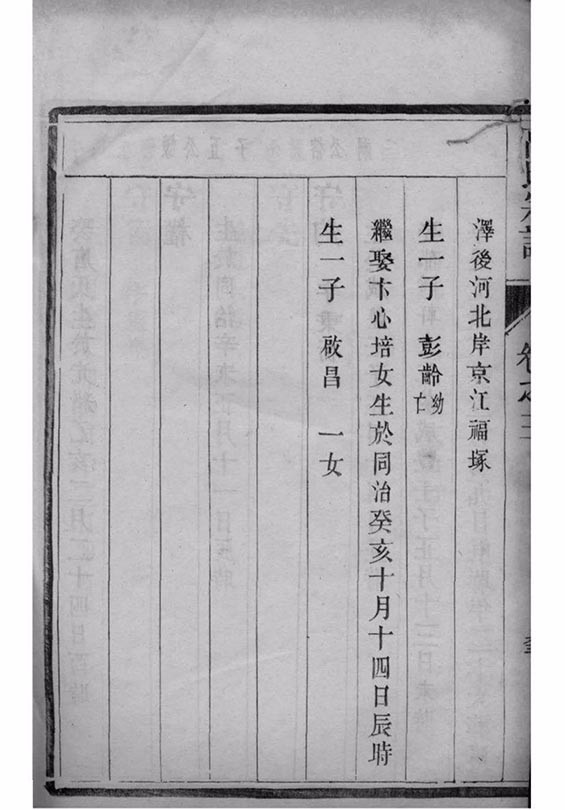 澤後河北岸京江福塚
生一子 彭齡幼亡
繼娶卞心培女生於同治癸亥十月十四日辰時
生一子 啟昌 一女